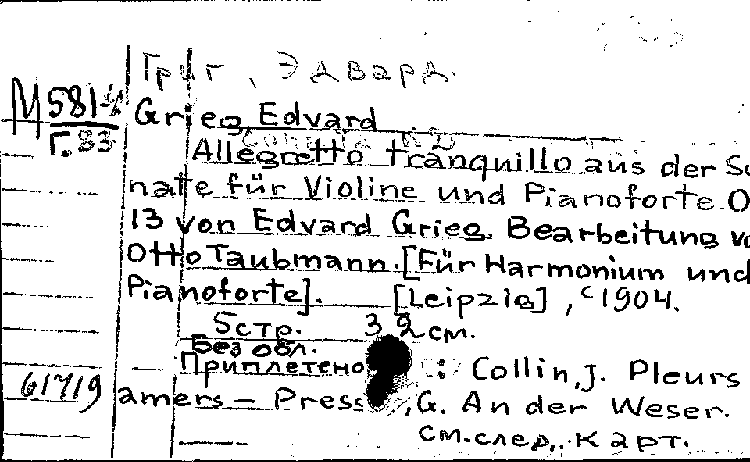 Григ, Эдвард.
М 581-4
Г.83
Grieg, Edvard
Allegretto tranquillo aus der So
nate für Violine und Pianoforte O
13 von Edvard Grieg. Bearbeitung vo
Otto Taubmann. [Für Harmonium und
Pianoforte]. [Leipzig], c1904.
5 стр. 32 см.
Без обл.
Приплетено : Collin, J. Pleurs
61719 amers - Press , G. An der Weser.
см. след. карт.